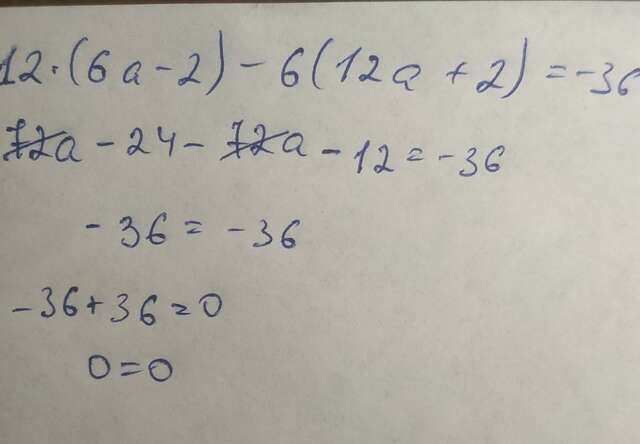 12·(6a-2)-6(12a+2)=-36
72a-24-72a-12=-36
-36=-36
-36+36=0
0=0